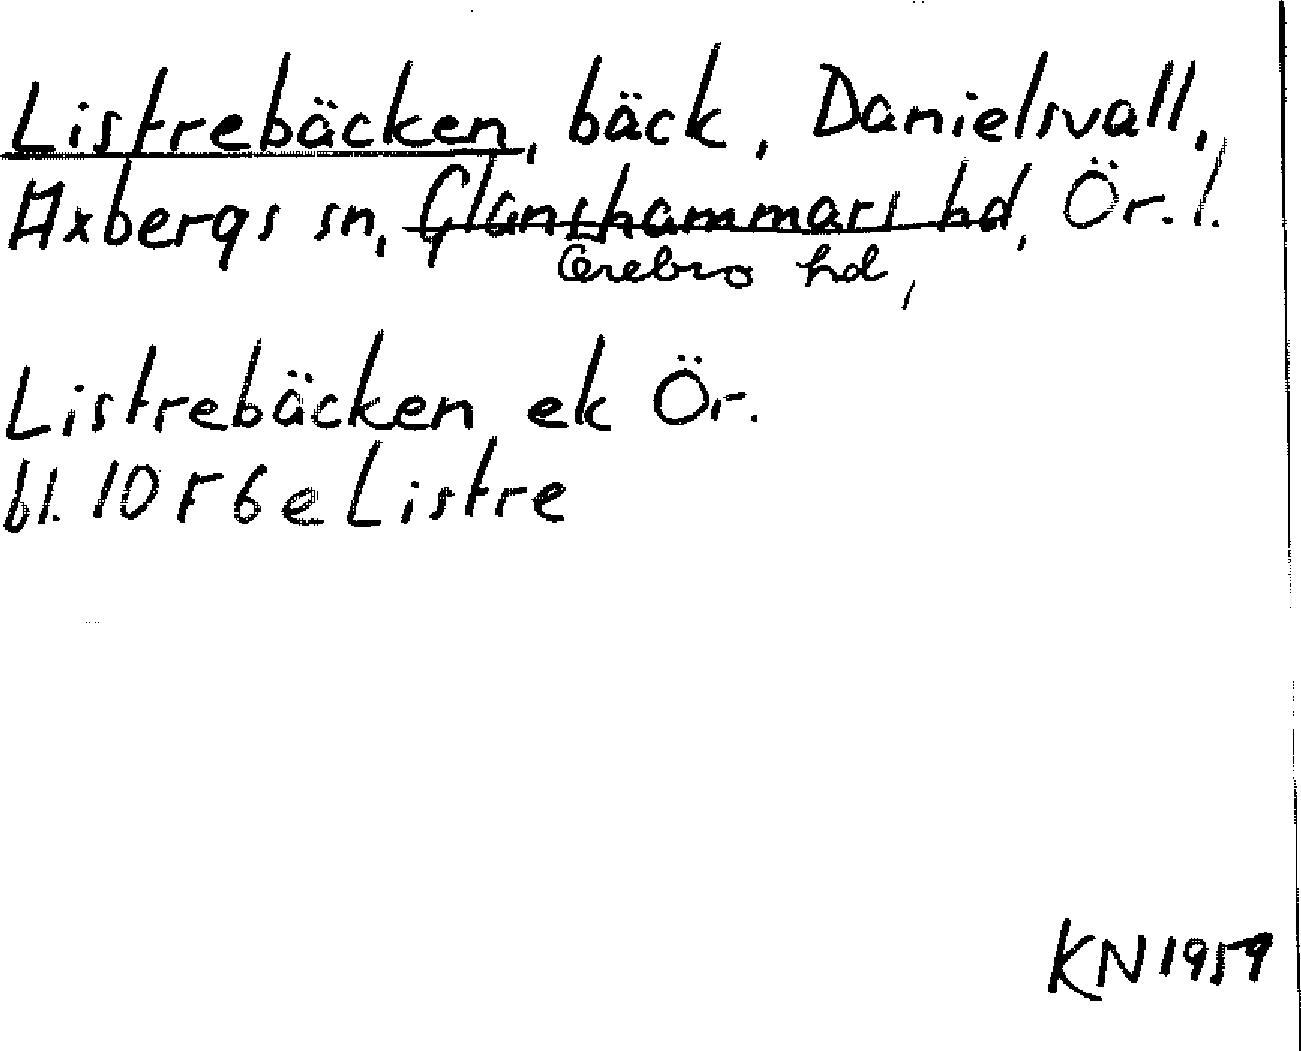 Listrebäcken, bäck, Danielsvall,
Axbergs sn, Glanshammars hd, Ör. l.
Örebro hd,
Listrebäcken ek Ör.
bl. 10 F 6 e Listre
KN 1959